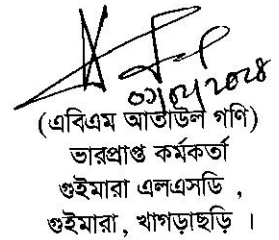 (এবিএম আতাউল গণি)
ভারপ্রাপ্ত কর্মকর্তা
গুইমারা এলএসডি ,
গুইমারা, খাগড়াছড়ি ।